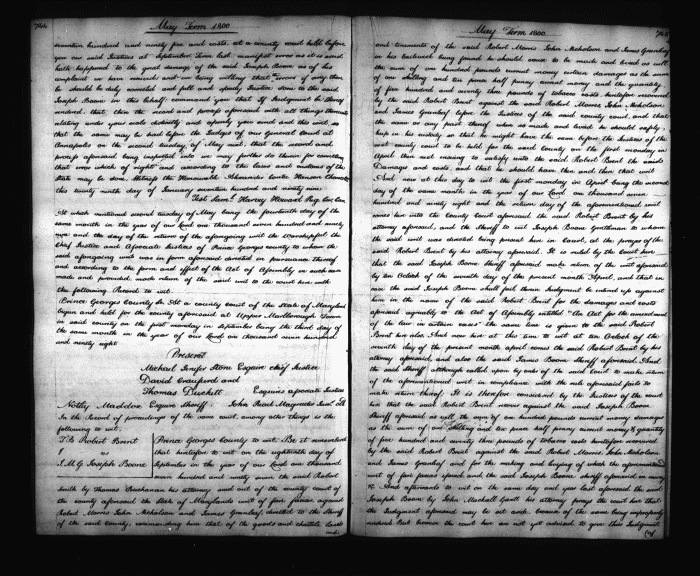 744
May Term 1800
seventeen hundred and ninety five and costs, at a county court held before
you our said Justices at September Term last, manifest error as it is said
hath happened to the great damage of the said Joseph Boone as of his
complaint we have received and we being willing that error if any there
be should be duly corrected and full and speedy Justice done to the said
Joseph Boone in this behalf command you that if Judgment be thereof
rendered that then the record and process aforesaid with all things thereunto
relating under your seals distinctly and openly you send and this writ so
that the same may be had before the Judges of our General Court at
Annapolis on the second tuesday of May next, that the record and
process aforesaid being inspected into we may further do therein for correcting
that error which of right and according to the laws and customs of the
State may be done. Witness the Honourable Alexander Contee Hanson Chancellor
this twenty ninth day of January seventeen hundred and ninety nine.
Test Saml. Harvey Howard Reg Cur Can
At which mentioned second tuesday of May being the fourteenth day of the
same month in the year of our Lord one thousand seven hundred and ninety
nine and the day of the return of the aforegoing writ the Worshipfull the
Chief Justice and Associate Justices of Prince Georges County to whom the
said aforegoing writ was in form aforesaid directed in pursuance thereof
and according to the form and effect of the Act of Assembly in such case
made and provided made return of the said writ to the court here with
the following Record to wit.
Prince Georges County Sc. At a county court of the State of Maryland
begun and held for the county aforesaid at Upper Marlborough Town
in said county on the first monday in september being the third day of
the same month in the year of our Lord one thousand seven hundred
and ninety eight
Present
Michael Jenifer Stone Esquire chief Justice
David Craufurd and
Thomas Duckett Esquires associate Justices
Notley Maddox Esquire Sheriff John Read Magruder Junr. Clk
In the Record of proceedings of the same court among other things is the
following to wit:
T.B. Robert Brent
vs
J.M.G. Joseph Boone
Prince Georges County to wit. Be it remembered
that heretofore to wit on the eighteenth day of
September in the year of our Lord one thousand
seven hundred and ninety seven the said Robert
Brent by Thomas Buchanan his attorney sued out of the county court of
the county aforesaid the State of Marylands writ of fieri facias against
Robert Morris John Nicholson and James Greenleaf, directed to the Sheriff
of the said County, commanding him that of the goods and chattels lands
and
May Term 1800.
745
and tenements of the said Robert Morris John Nicholson and James Greenleaf
in his bailiwick being found he should cause to be made and levied as well
the sum of one hundred pounds current money certain damages as the sum
of one shilling and ten pence half penny current money and the quantity
of five hundred and seventy three pounds of tobacco costs heretofore recovered
by the said Robert Brent against the said Robert Morris John Nicholson
and James Greenleaf before the Justices of the said county court, and that
the same or any part thereof when so made and levied he should safely
keep in his custody so that he might have the same before the Justices of the
next county court to be held for the said County on the first monday in
April then next ensuing to satisfy unto the said Robert Brent the said
Damages and costs, and that he should have then and there that writ
And now at this day to wit the first monday in April being the second
day of the same month in the year of our Lord one thousand seven
hundred and ninety eight and the return day of the aforementioned writ
comes here into the County Court aforesaid the said Robert Brent by his
attorney aforesaid, and the Sheriff to wit Joseph Boone Gentleman to whom
the said writ was directed being present here in Court, at the prayer of the
said Robert Brent by his attorney aforesaid. It is ruled by the Court here
that the said Joseph Boone sheriff aforesaid make return of the writ aforesaid
by ten OClock of the seventh day of the present month April, and that in
case the said Joseph Boone shall fail therein Judgment be entered up against
him in the name of the said Robert Brent for the damages and costs
aforesaid agreeably to the Act of Assembly entitled "An Act for the amendment
of the law in certain cases" the same time is given to the said Robert
Brent here also. And now here at this time to wit at ten OClock of the
seventh day of the present month April comes the said Robert Brent by his
attorney aforesaid, and also the said James Boone sheriff aforesaid. And
the said sheriff although called upon by order of the said Court to make return
of the aforementioned writ in compliance with the rule aforesaid fails to
make return thereof. It is therefore considered by the Justices of the court
here that the said Robert Brent recover against the said Joseph Boone
Sheriff aforesaid as well the sum of one hundred pounds current money damages
as the sum of one shilling and ten pence half penny current money & quantity
of five hundred and seventy three pounds of tobacco costs heretofore recovered
by the said Robert Brent against the said Robert Morris John Nicholson
and James Greenleaf and for the making and levying of which the aforementioned
writ of fieri facias issued and the said Joseph Boone sheriff aforesaid in mercy
&c. And afterwards to wit on the same day and year last aforesaid the said
Joseph Boone by John Mackall Gantt his attorney prays the court here that
the Judgment aforesaid may be set aside because of the same being improperly
entered. But because the court here are not yet advised to give their Judgment
of